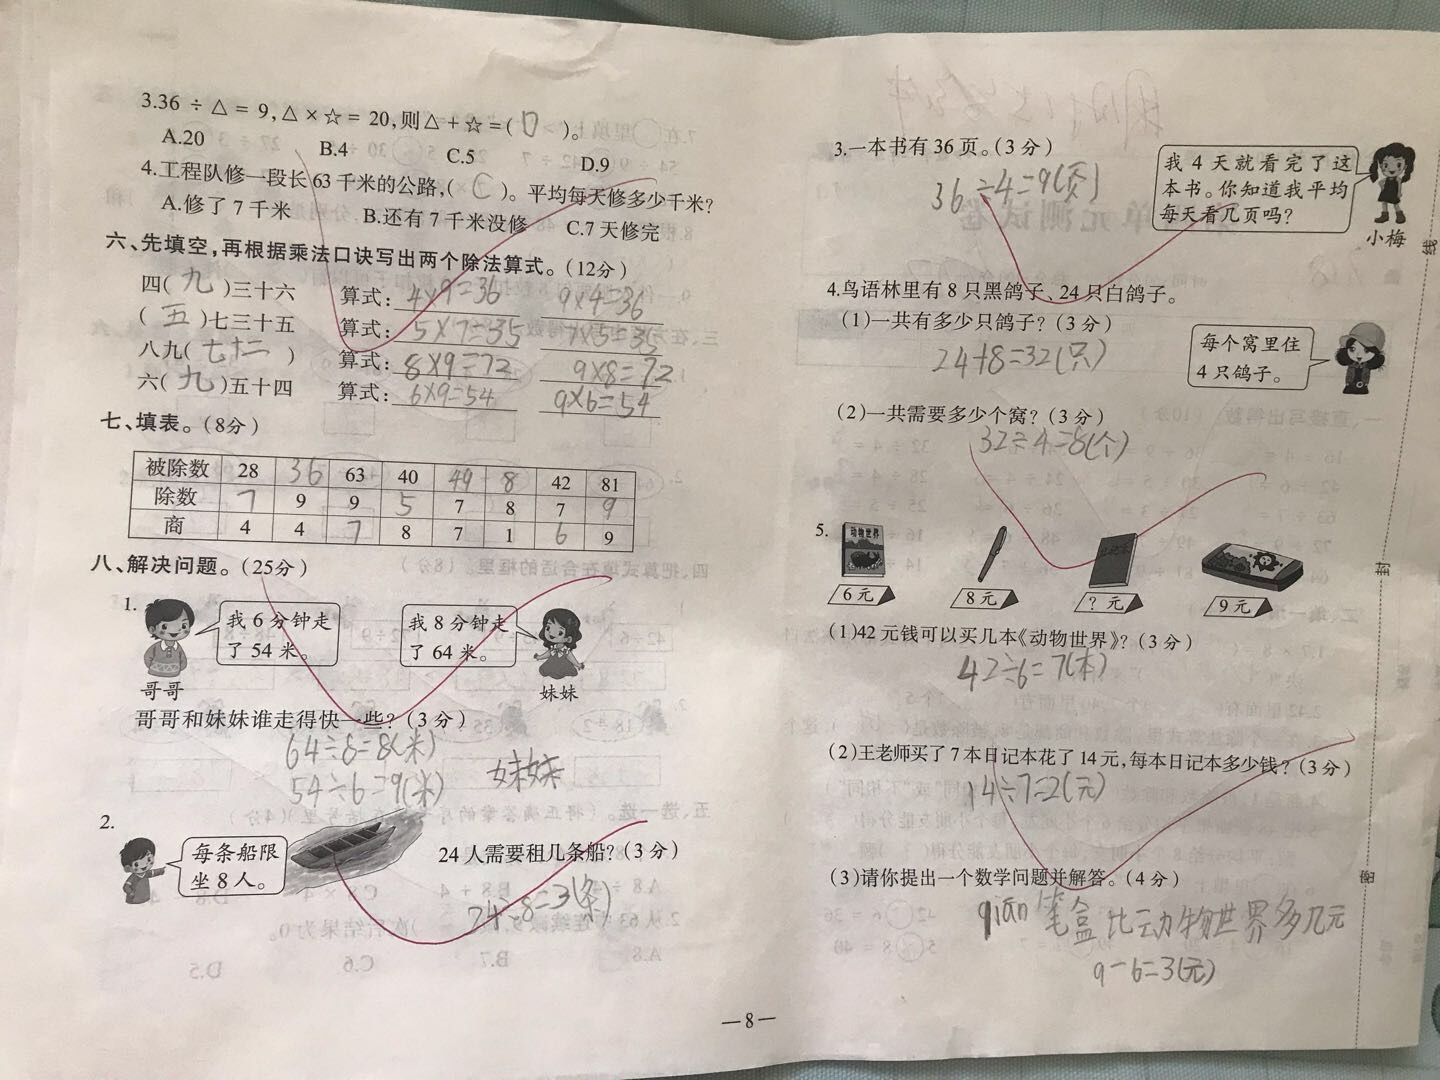 3.36÷△=9,△×☆=20,则△+☆=( D )。
A.20 B.4 C.5 D.9
4.工程队修一段长63千米的公路,( C )。平均每天修多少千米?
A.修了7千米 B.还有7千米没修 C.7天修完
六、先填空,再根据乘法口诀写出两个除法算式。(12分)
四(九)三十六 算式:4×9=36 9×4=36
(五)七三十五 算式:5×7=35 7×5=35
八九(七十二) 算式:8×9=72 9×8=72
六(九)五十四 算式:6×9=54 9×6=54
七、填表。(8分)
被除数 28 36 63 40 49 8 42 81
除数 7 9 9 5 7 8 7 9
商 4 4 7 8 7 1 6 9
八、解决问题。(25分)
1.
我6分钟走
了54米。
哥哥
我8分钟走
了64米。
妹妹
哥哥和妹妹谁走得快一些?(3分)
64÷8=8(米)
54÷6=9(米) 妹妹
2.
每条船限
坐8人。
24人需要租几条船?(3分)
24÷8=3(条)
3.一本书有36页。(3分)
36÷4=9(页)
我4天就看完了这
本书。你知道我平均
每天看几页吗?
小梅
4.鸟语林里有8只黑鸽子、24只白鸽子。
(1)一共有多少只鸽子?(3分)
24+8=32(只)
每个窝里住
4只鸽子。
(2)一共需要多少个窝?(3分)
32÷4=8(个)
5.
动物世界
6元 8元 ?元 9元
(1)42元钱可以买几本《动物世界》?(3分)
42÷6=7(本)
(2)王老师买了7本日记本花了14元,每本日记本多少钱?(3分)
14÷7=2(元)
(3)请你提出一个数学问题并解答。(4分)
qiān笔盒比动物世界多几元
9-6=3(元)
线
封
密
—8—